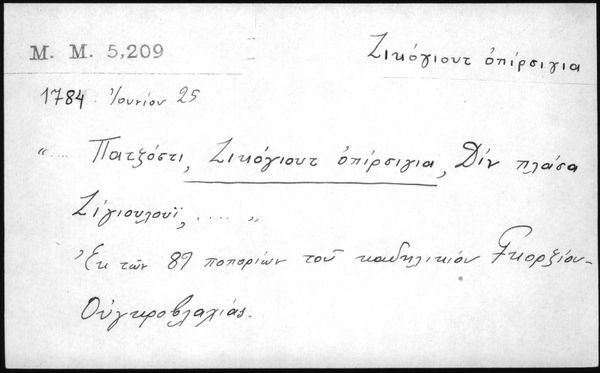 Μ. Μ. 5,209
Ζικόγιουτ ὀπίρσιγια
1784 Ἰουνίου 25
".... Πατζόστι, Ζικόγιουτ ὀπίρσιγια, Δίν πλάσα
Ζίγιουλουϊ, .... "
Ἐκ τῶν 89 ποπορίων τοῦ καδηλικίου Γκορζίου-
Οὑγκροβλαχίας.